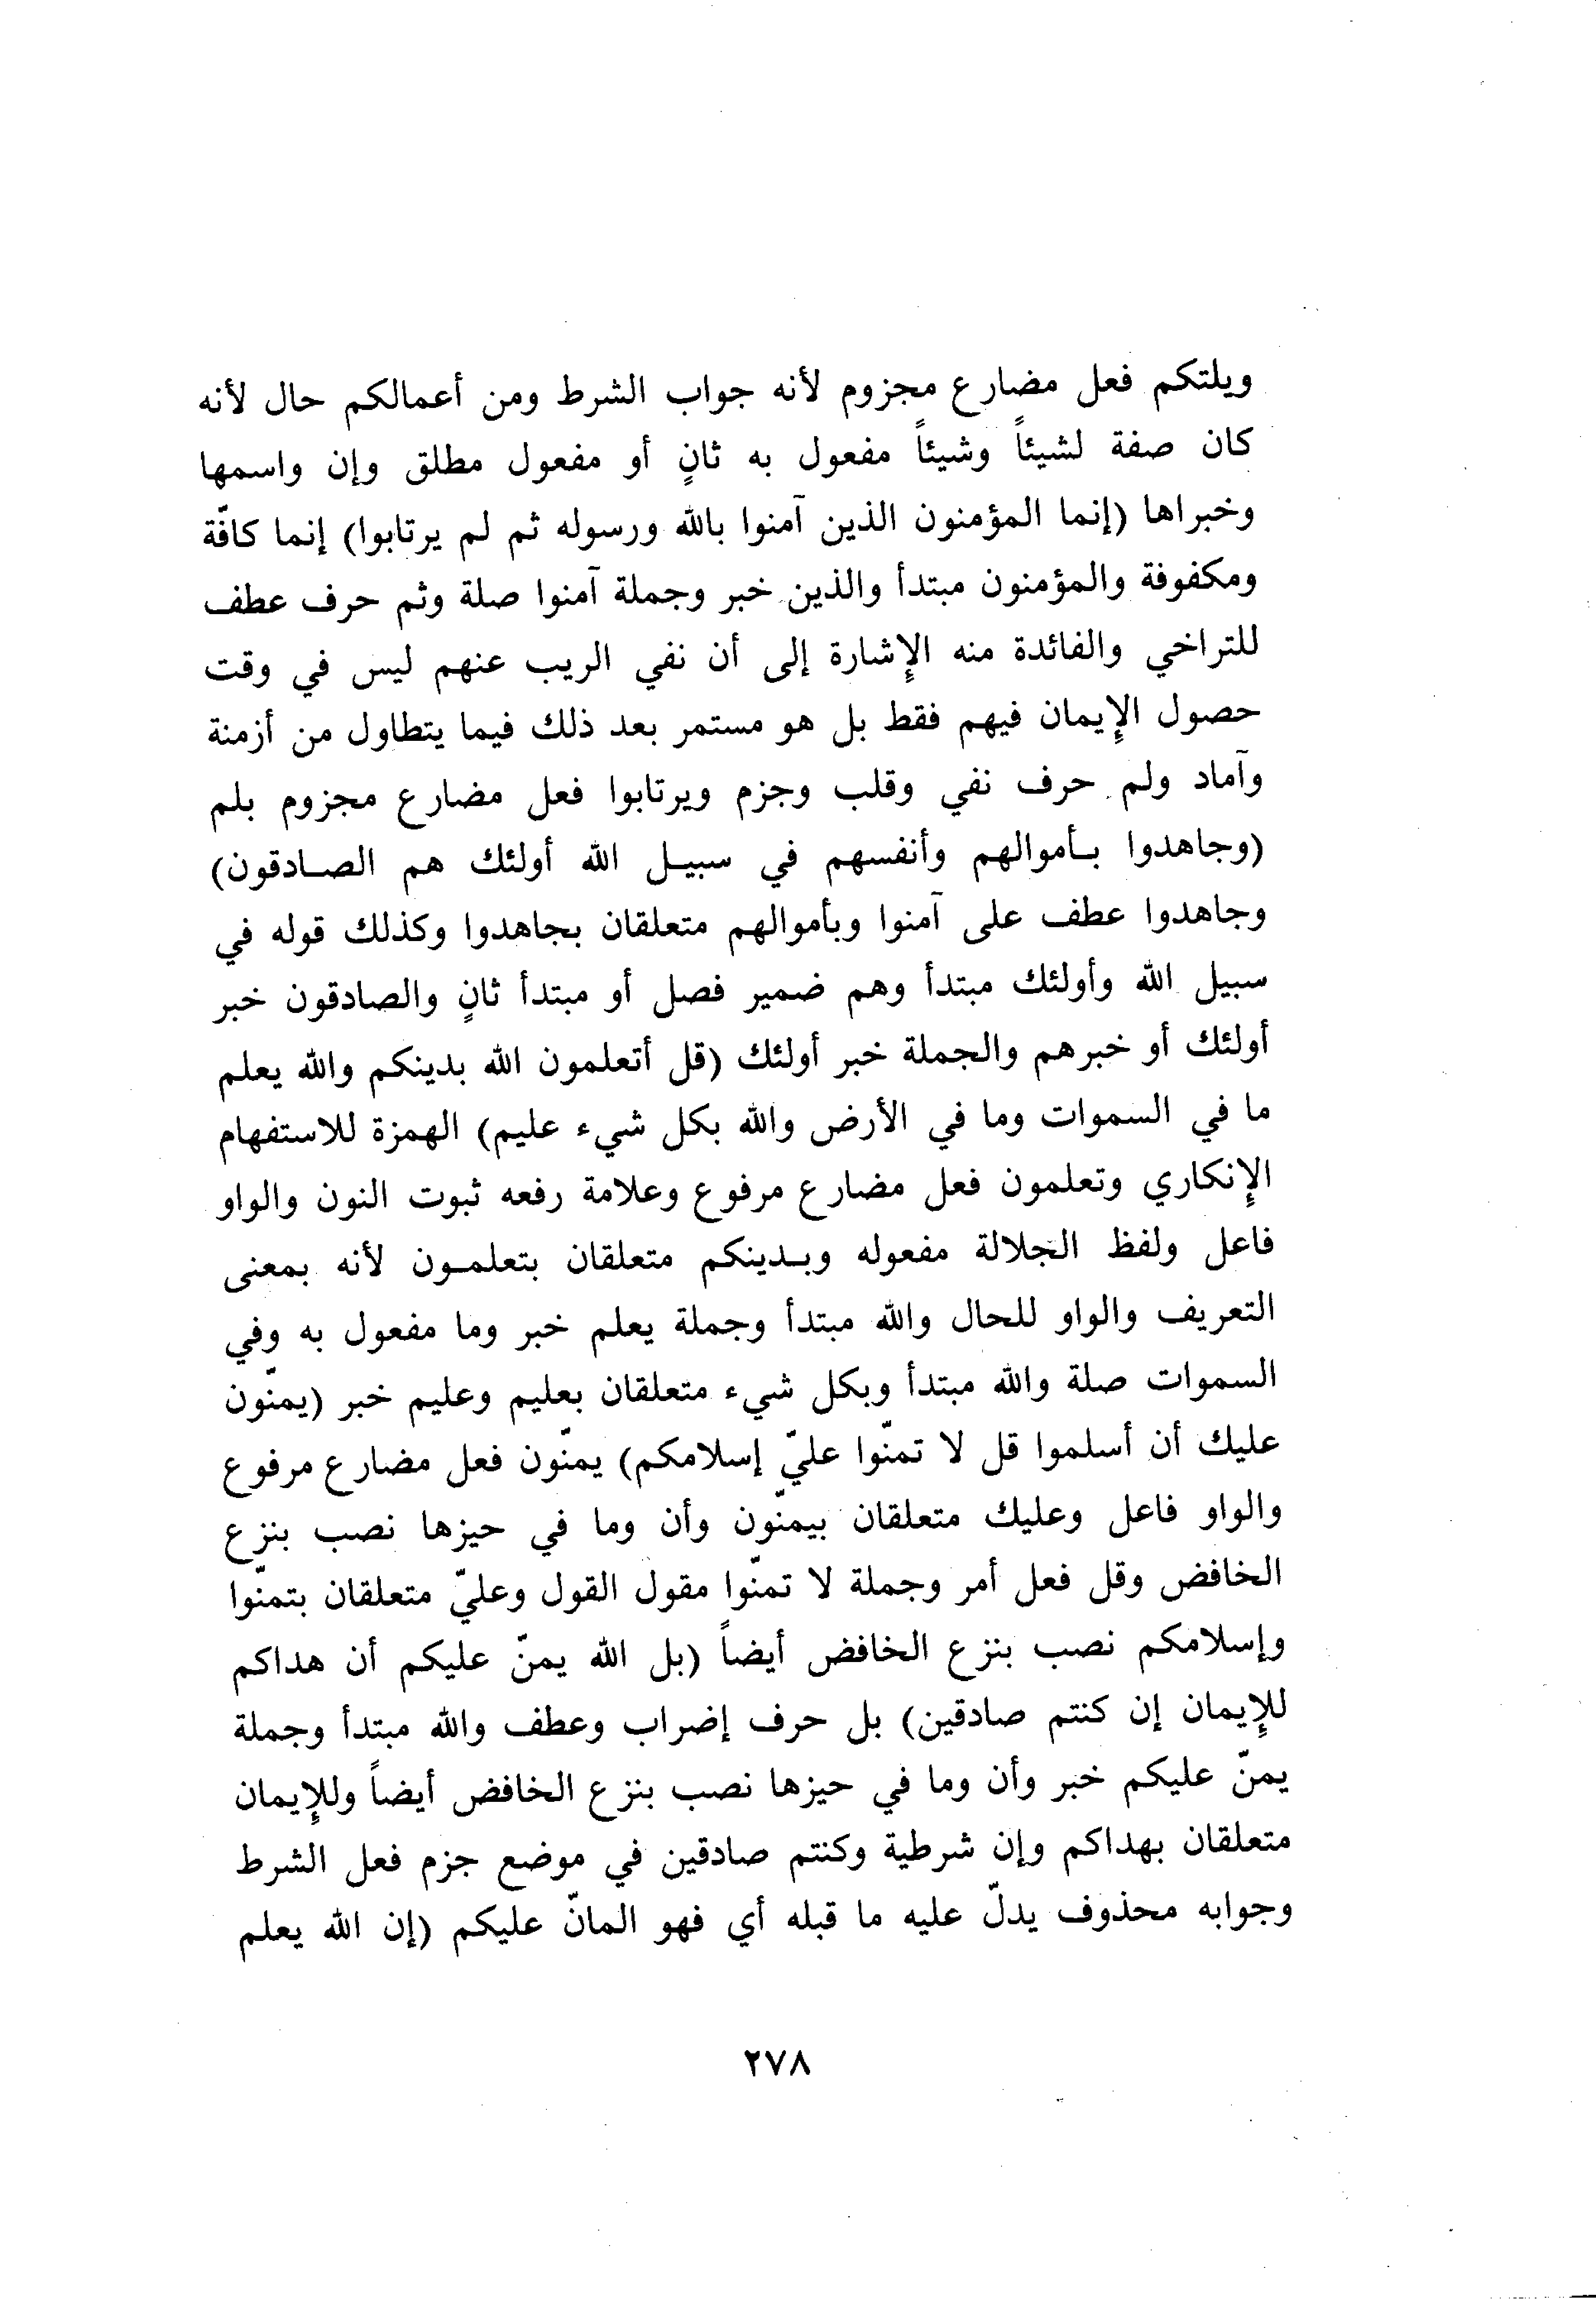 ويلتكم فعل مضارع مجزوم لأنه جواب الشرط ومن أعمالكم حال لأنه
كان صفة لشيئاً وشيئاً مفعول به ثانٍ أو مفعول مطلق وإن واسمها
وخبراها (إنما المؤمنون الذين آمنوا بالله ورسوله ثم لم يرتابوا) إنما كافّة
ومكفوفة والمؤمنون مبتدأ والذين خبر وجملة آمنوا صلة وثم حرف عطف
للتراخي والفائدة منه الإِشارة إلى أن نفي الريب عنهم ليس في وقت
حصول الإِيمان فيهم فقط بل هو مستمر بعد ذلك فيما يتطاول من أزمنة
وآماد ولم حرف نفي وقلب وجزم ويرتابوا فعل مضارع مجزوم بلم
(وجاهدوا بـأموالهم وأنفسهم في سبيـل الله أولئك هم الصـادقون)
وجاهدوا عطف على آمنوا وبأموالهم متعلقان بجاهدوا وكذلك قوله في
سبيل الله وأولئك مبتدأ وهم ضمير فصل أو مبتدأ ثانٍ والصادقون خبر
أولئك أو خبرهم والجملة خبر أولئك (قل أتعلمون الله بدينكم والله يعلم
ما في السموات وما في الأرض والله بكل شيء عليم) الهمزة للاستفهام
الإِنكاري وتعلمون فعل مضارع مرفوع وعلامة رفعه ثبوت النون والواو
فاعل ولفظ الجلالة مفعوله وبـدينكم متعلقان بتعلمـون لأنه بمعنى
التعريف والواو للحال والله مبتدأ وجملة يعلم خبر وما مفعول به وفي
السموات صلة والله مبتدأ وبكل شيء متعلقان بعليم وعليم خبر (يمنّون
عليك أن أسلموا قل لا تمنّوا عليّ إسلامكم) يمنّون فعل مضارع مرفوع
والواو فاعل وعليك متعلقان بيمنّون وأن وما في حيزها نصب بنزع
الخافض وقل فعل أمر وجملة لا تمنّوا مقول القول وعليّ متعلقان بتمنّوا
وإسلامكم نصب بنزع الخافض أيضاً (بل الله يمنّ عليكم أن هداكم
للإِيمان إن كنتم صادقين) بل حرف إضراب وعطف والله مبتدأ وجملة
يمنّ عليكم خبر وأن وما في حيزها نصب بنزع الخافض أيضاً وللإِيمان
متعلقان بهداكم وإن شرطية وكنتم صادقين في موضع جزم فعل الشرط
وجوابه محذوف يدلّ عليه ما قبله أي فهو المانّ عليكم (إن الله يعلم
٢٧٨